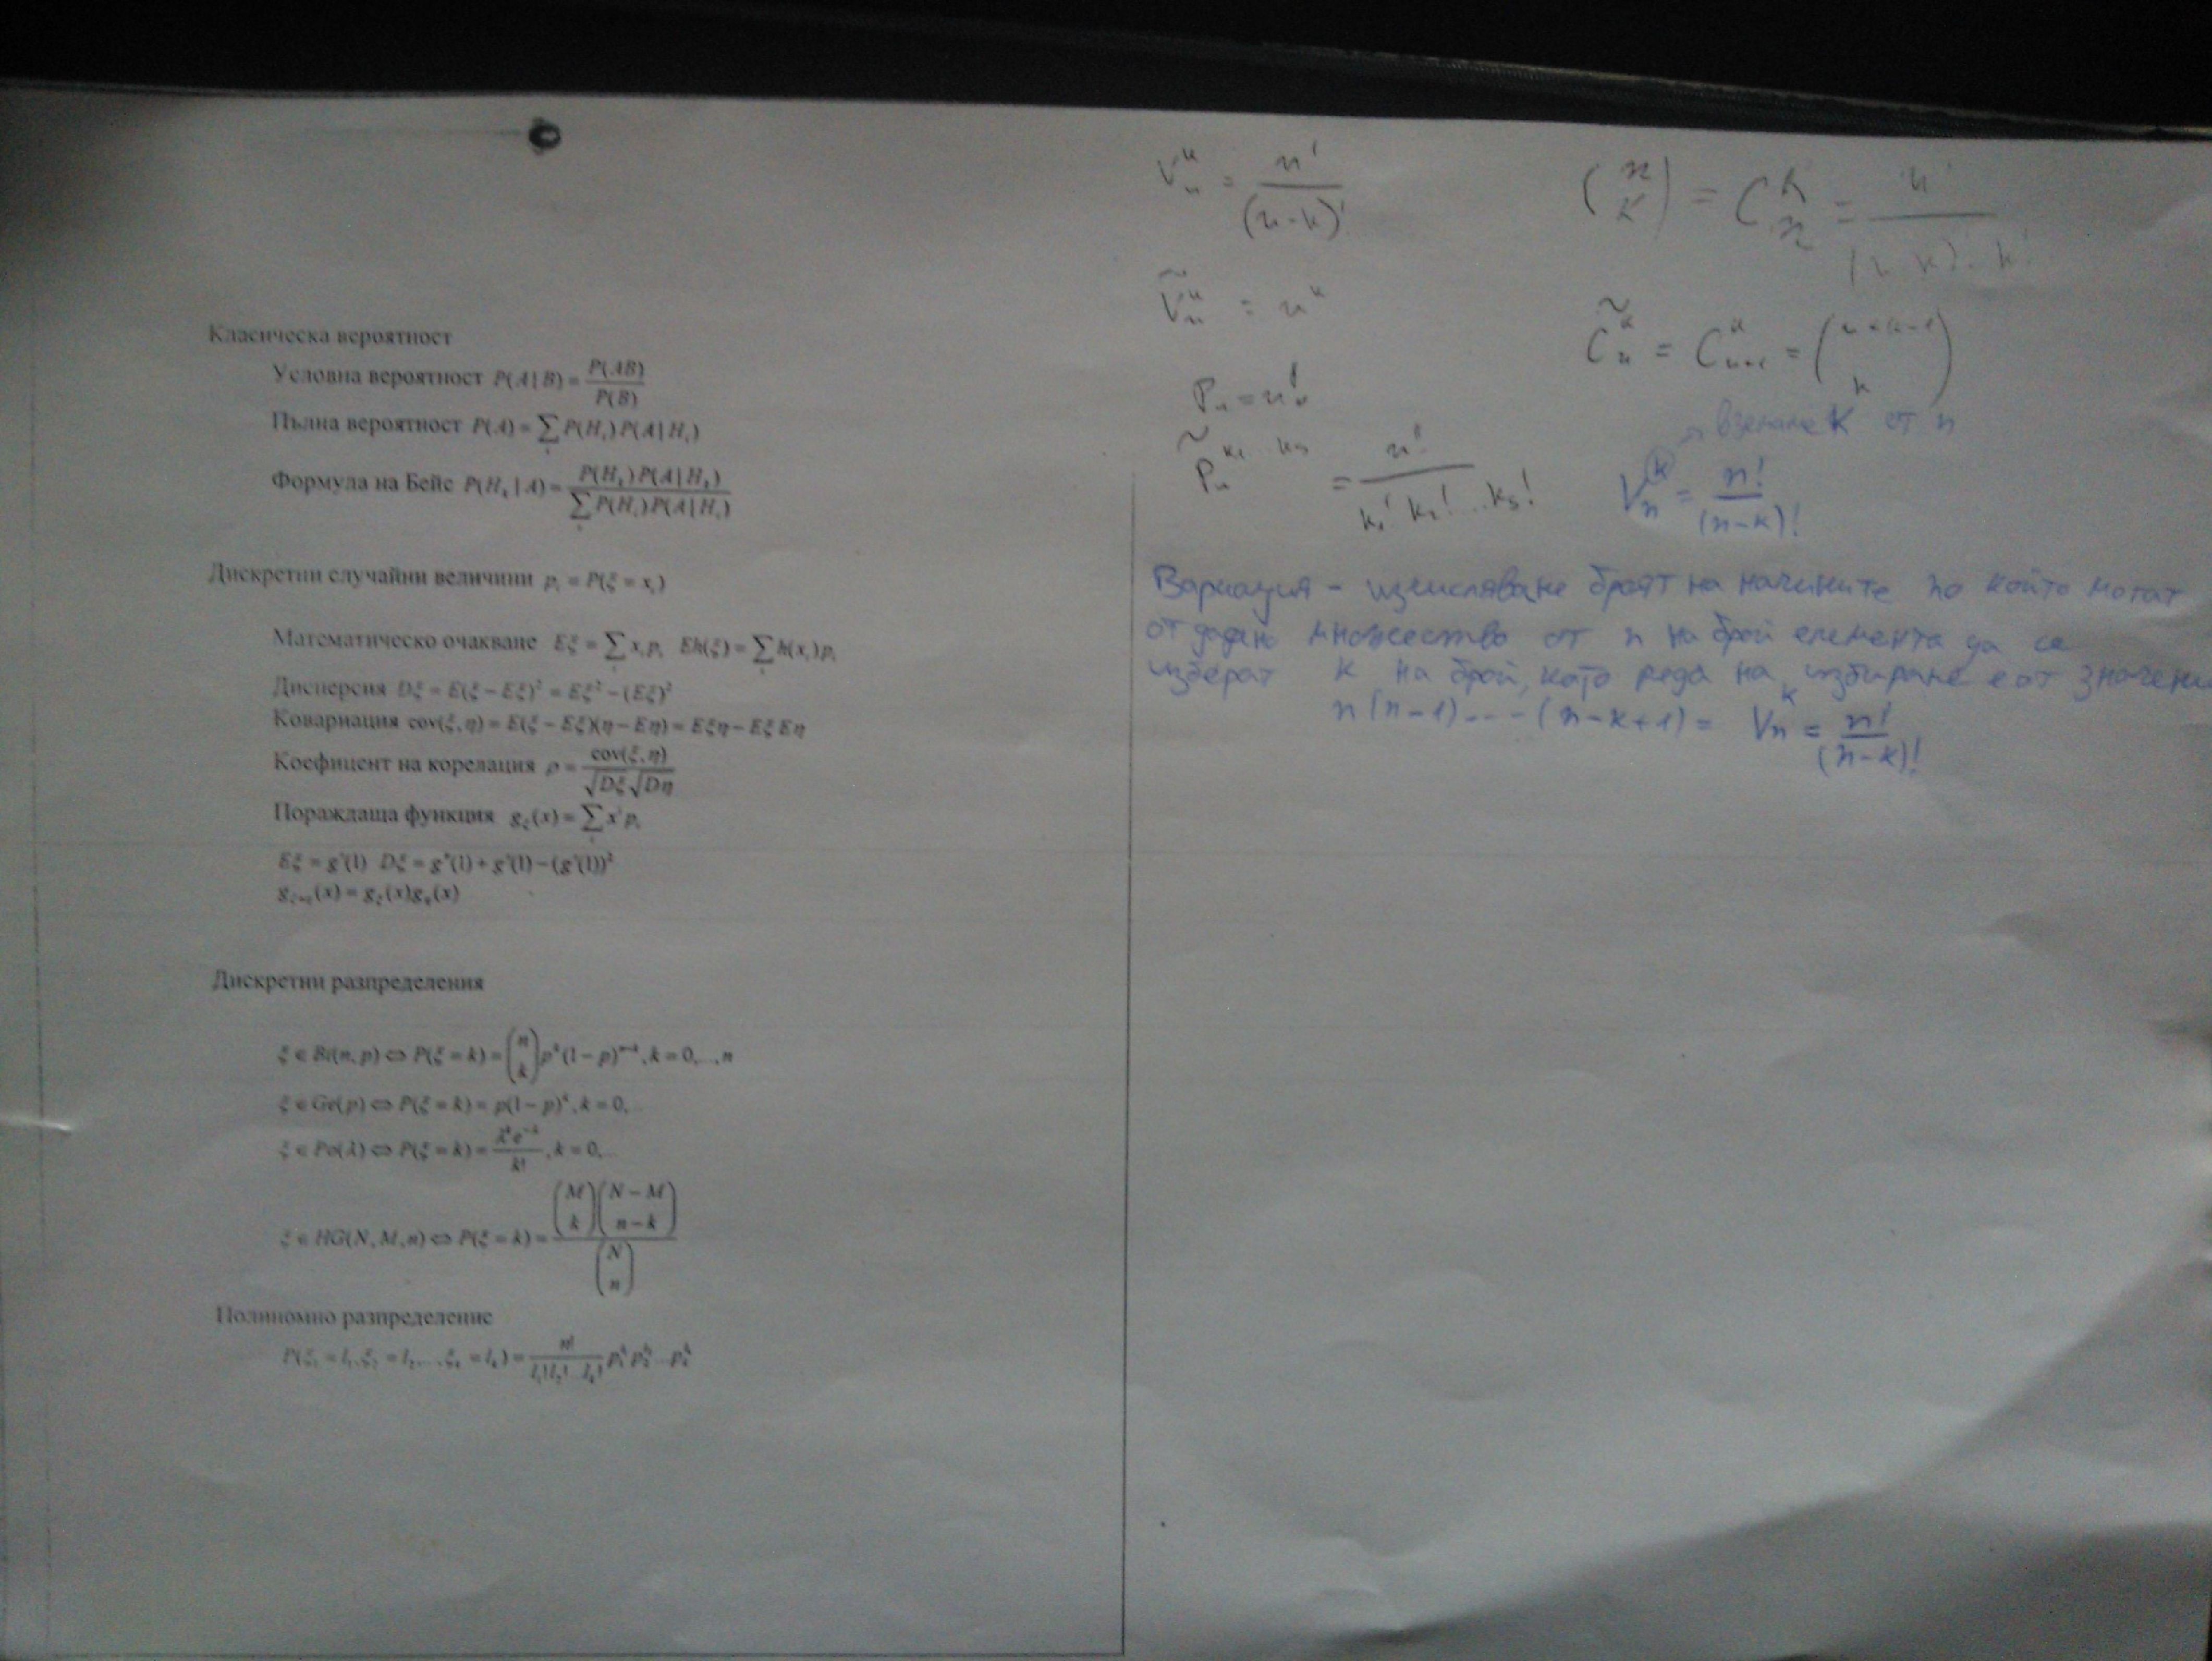 Класическа вероятност
Условна вероятност P(A|B) = P(AB) / P(B)
Пълна вероятност P(A) = ∑ᵢ P(Hᵢ) P(A|Hᵢ)
Формула на Бейс P(Hₖ|A) = P(Hₖ) P(A|Hₖ) / ∑ᵢ P(Hᵢ) P(A|Hᵢ)
Дискретни случайни величини pᵢ = P(ξ = xᵢ)
Математическо очакване Eξ = ∑ᵢ xᵢ pᵢ Eh(ξ) = ∑ᵢ h(xᵢ) pᵢ
Дисперсия Dξ = E(ξ − Eξ)² = Eξ² − (Eξ)²
Ковариация cov(ξ, η) = E(ξ − Eξ)(η − Eη) = Eξη − Eξ Eη
Коефицент на корелация ρ = cov(ξ, η) / √Dξ √Dη
Пораждаща функция g_ξ(x) = ∑ᵢ xⁱ pᵢ
Eξ = g'(1) Dξ = g''(1) + g'(1) − (g'(1))²
g_ξ+η(x) = g_ξ(x) g_η(x)
Дискретни разпределения
ξ ∈ Bi(n, p) ⇔ P(ξ = k) = (n k) pᵏ (1 − p)ⁿ⁻ᵏ, k = 0,...,n
ξ ∈ Ge(p) ⇔ P(ξ = k) = p(1 − p)ᵏ, k = 0,...
ξ ∈ Po(λ) ⇔ P(ξ = k) = λᵏ e^−λ / k!, k = 0,...
ξ ∈ HG(N, M, n) ⇔ P(ξ = k) = (M k)(N − M n − k) / (N n)
Полиномно разпределение
P(ξ₁ = l₁, ξ₂ = l₂,..., ξₖ = lₖ) = n! / l₁! l₂!...lₖ! p₁^l₁ p₂^l₂...pₖ^lₖ
Vₙᵏ = n! / (n-k)!
(n k) = Cₙᵏ = n! / (n-k)! . k!
Ṽₙᵏ = nᵏ
C̃ₙᵏ = = (n+k-1 k)
Pₙ = n!
P̃ₙ = n! / k₁! k₂! ... kₛ!
вземане K от n
Vₙᵏ = n! / (n-k)!
Вариация - изчисляване броят на начините по който могат
от дадено множество от n на брой елемента да се
изберат k на брой, като реда на избиране е от
n(n-1)...(n-k+1) = Vₙᵏ = n! / (n-k)!